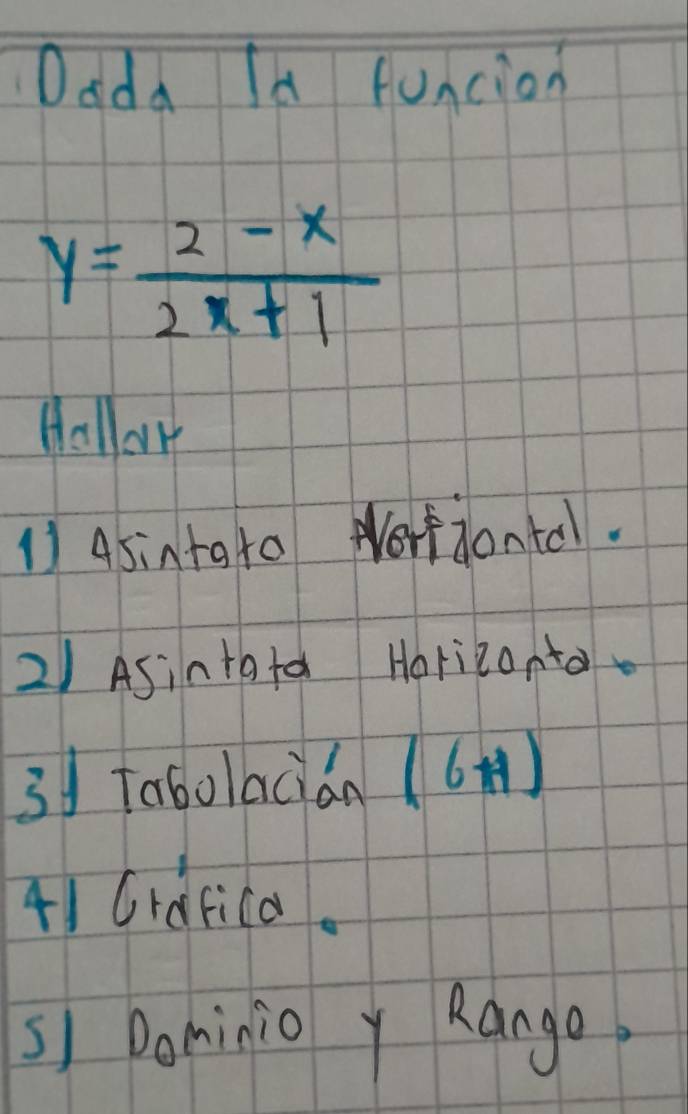 Dada la función
y = 2 - x / 2x + 1
Hallar
1) Asintota Vertizontal.
2) Asintota Horizonta.
3) Tabolación (6#)
4) Gráfica.
5) Dominio y Rango.